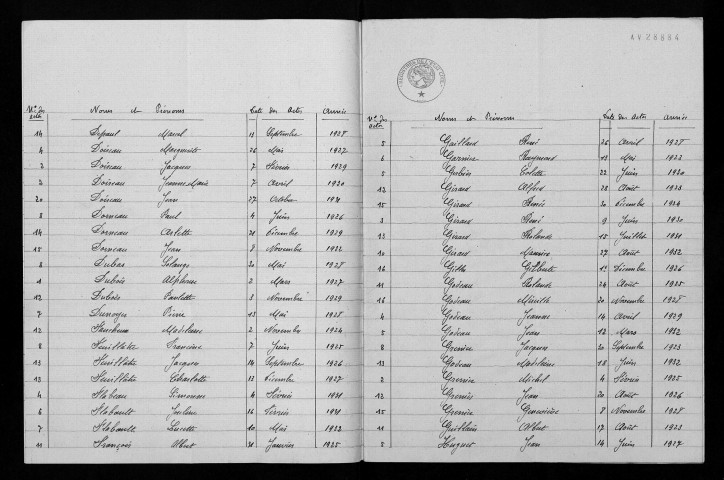 Nos des actes Noms et Prénoms Date des Actes Année
14 Depaul Marcel 11 Septembre 1928
4 Doiseau Marguerite 26 Mai 1927
2 Doiseau Jacques 7 Février 1929
3 Doiseau Jeanne Marie 7 Avril 1930
20 Doiseau Jean 27 Octobre 1931
8 Dorneau Paul 4 Juin 1926
14 Dorneau Arlette 21 Décembre 1929
15 Dorneau Jean 8 Novembre 1932
8 Dubois Solange 30 Mai 1928
1 Dubois Alphonse 2 Mars 1927
12 Dubois Paulette 8 Novembre 1929
7 Dunoyer Pierre 13 Mai 1928
12 Madeleine 2 Novembre 1924
8 Feuillâtre Francine 7 Juin 1925
13 Feuillâtre Jacques 14 Septembre 1926
13 Feuillâtre Charlotte 12 Décembre 1927
4 Flabeau Simonne 4 Février 1931
6 Flabault Julien 16 Février 1931
7 Flabault Lucette 10 Mai 1932
11 François Albert 31 Janvier 1925
AV28884
Nos des actes Noms et Prénoms Date des Actes Année
5 Gaillard René 26 Avril 1928
6 Garnier Raymond 13 Mai 1923
Colette 22 Juin 1930
13 Girard Alfred 28 Août 1923
15 Girard Renée 30 Décembre 1924
3 Girard René 9 Juin 1930
13 Girard Rolande 15 Juillet 1931
10 Girard 27 Août 1932
16 Gilberte 1er Décembre 1926
11 Godeau Rolande 24 Août 1925
16 Godeau 20 Novembre 1928
4 Godeau Jeanne 14 Avril 1929
5 Godeau Jean 12 Mars 1932
8 Grenier Jacques 20 Septembre 1923
13 Godeau Madeleine 18 Juin 1932
2 Grenier Michel 4 Février 1925
12 Jean 20 Août 1926
15 Grenier Geneviève 8 Novembre 1928
11 Guiblain Albert 17 Août 1923
5 Huguet Jean 14 Juin 1927